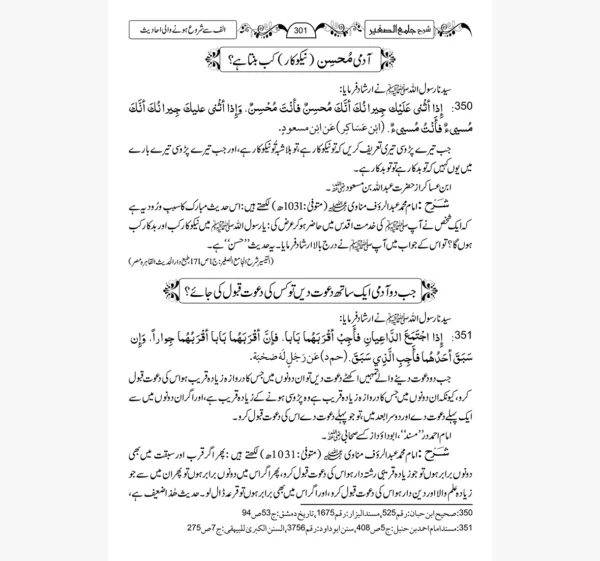 شرح جامع الصغیر 301 الف سے شروع ہونے والی احادیث
آدمی مُحسِن (نیکوکار) کب بنتا ہے؟
سیدنا رسول اللہ ﷺ نے ارشاد فرمایا:
350: إِذَا أَثْنَى عَلَيْكَ جِيرَانُكَ أَنَّكَ مُحْسِنٌ فَأَنْتَ مُحْسِنٌ، وَإِذَا أَثْنَى عليكَ جِيرَانُكَ أَنَّكَ
مُسِيءٌ فَأَنْتَ مُسِيءٌ. (ابْنِ عَسَاكِر) عَنِ ابْنِ مسعودٍ.
جب تیرے پڑوسی تیری تعریف کریں کہ تو نیکوکار ہے، تو بلاشبہ تُو نیکوکار ہے، اور جب تیرے پڑوسی تیرے بارے
میں یوں کہیں کہ تو بدکار ہے تو تو بدکار ہے۔
ابن عساکر از حضرت عبداللہ بن مسعود ؓ۔
شرح: امام محمد عبدالرؤف مناوی ؒ (متوفیٰ: 1031ھ) لکھتے ہیں: اس حدیث مبارک کا سبب ورُود یہ ہے
کہ ایک شخص نے آپ ﷺ کی خدمت اقدس میں حاضر ہو کر عرض کی: یا رسول اللہ ﷺ میں نیکوکار کب اور بدکار کب
ہوں گا؟ تو اس کے جواب میں آپ ﷺ نے درج بالا ارشاد فرمایا۔ یہ حدیث ”حسن“ ہے۔
(التیسیر شرح الجامع الصغیر: ج1 ص171 طبع دار الحدیث القاہرہ مصر)
جب دو آدمی ایک ساتھ دعوت دیں تو کس کی دعوت قبول کی جائے؟
سیدنا رسول اللہ ﷺ نے ارشاد فرمایا:
351: إِذَا اجْتَمَعَ الدَّاعِيَانِ فَأَجِبْ أَقْرَبَهُمَا بَابًا، فَإِنَّ أَقْرَبَهُمَا بَابًا أَقْرَبُهُمَا جِوَارًا، وَإِن
سَبَقَ أَحَدُهُمَا فَأَجِبِ الَّذِي سَبَقَ. (حم د) عَن رَجُلٍ لَهُ صُحْبَةٌ.
جب دو دعوت دینے والے تمہیں اکٹھے دعوت دیں تو ان دونوں میں جس کا دروازہ زیادہ قریب ہے ہو اس کی دعوت قبول
کرو، کیونکہ ان دونوں میں جس کا دروازہ زیادہ قریب ہے وہ پڑوسی ہونے کے زیادہ قریب ہے، اور اگر ان دونوں میں سے
ایک پہلے دعوت دے اور دوسرا بعد میں، تو جو پہلے دعوت دے اس کی دعوت قبول کرو۔
امام احمد در ”مسند“، ابوداؤد از کے صحابی ؓ۔
شرح: امام محمد عبدالرؤف مناوی ؒ (متوفیٰ: 1031ھ) لکھتے ہیں: پھر اگر قرب اور سبقت میں بھی
دونوں برابر ہوں تو جو زیادہ قریبی رشتہ دار ہو اس کی دعوت قبول کرو، پھر اگر اس میں دونوں برابر ہوں تو پھر ان میں سے جو
زیادہ علم والا اور دین دار ہو اس کی دعوت قبول کرو، اور اگر اس میں بھی برابر ہوں تو قرعہ ڈال لو۔ حدیث ھذا ضعیف ہے،
350: صحیح ابن حبان: رقم 525، مسند البزار: رقم 1675، تاریخ دمشق: ج53 ص94
351: مسند امام احمد بن حنبل: ج5 ص408، سنن ابو داود: رقم 3756، السنن الکبریٰ للبیہقی: ج7 ص275